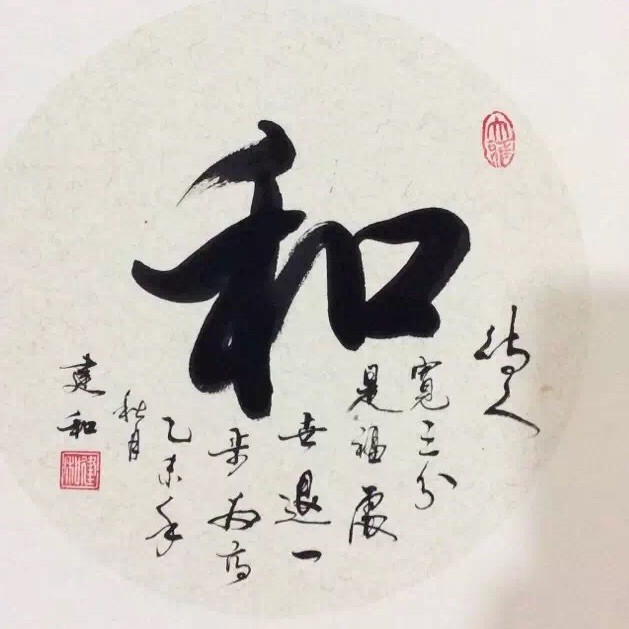 和
待人
寬三分
是福處
世退一
步為高
乙未年
秋月
建和